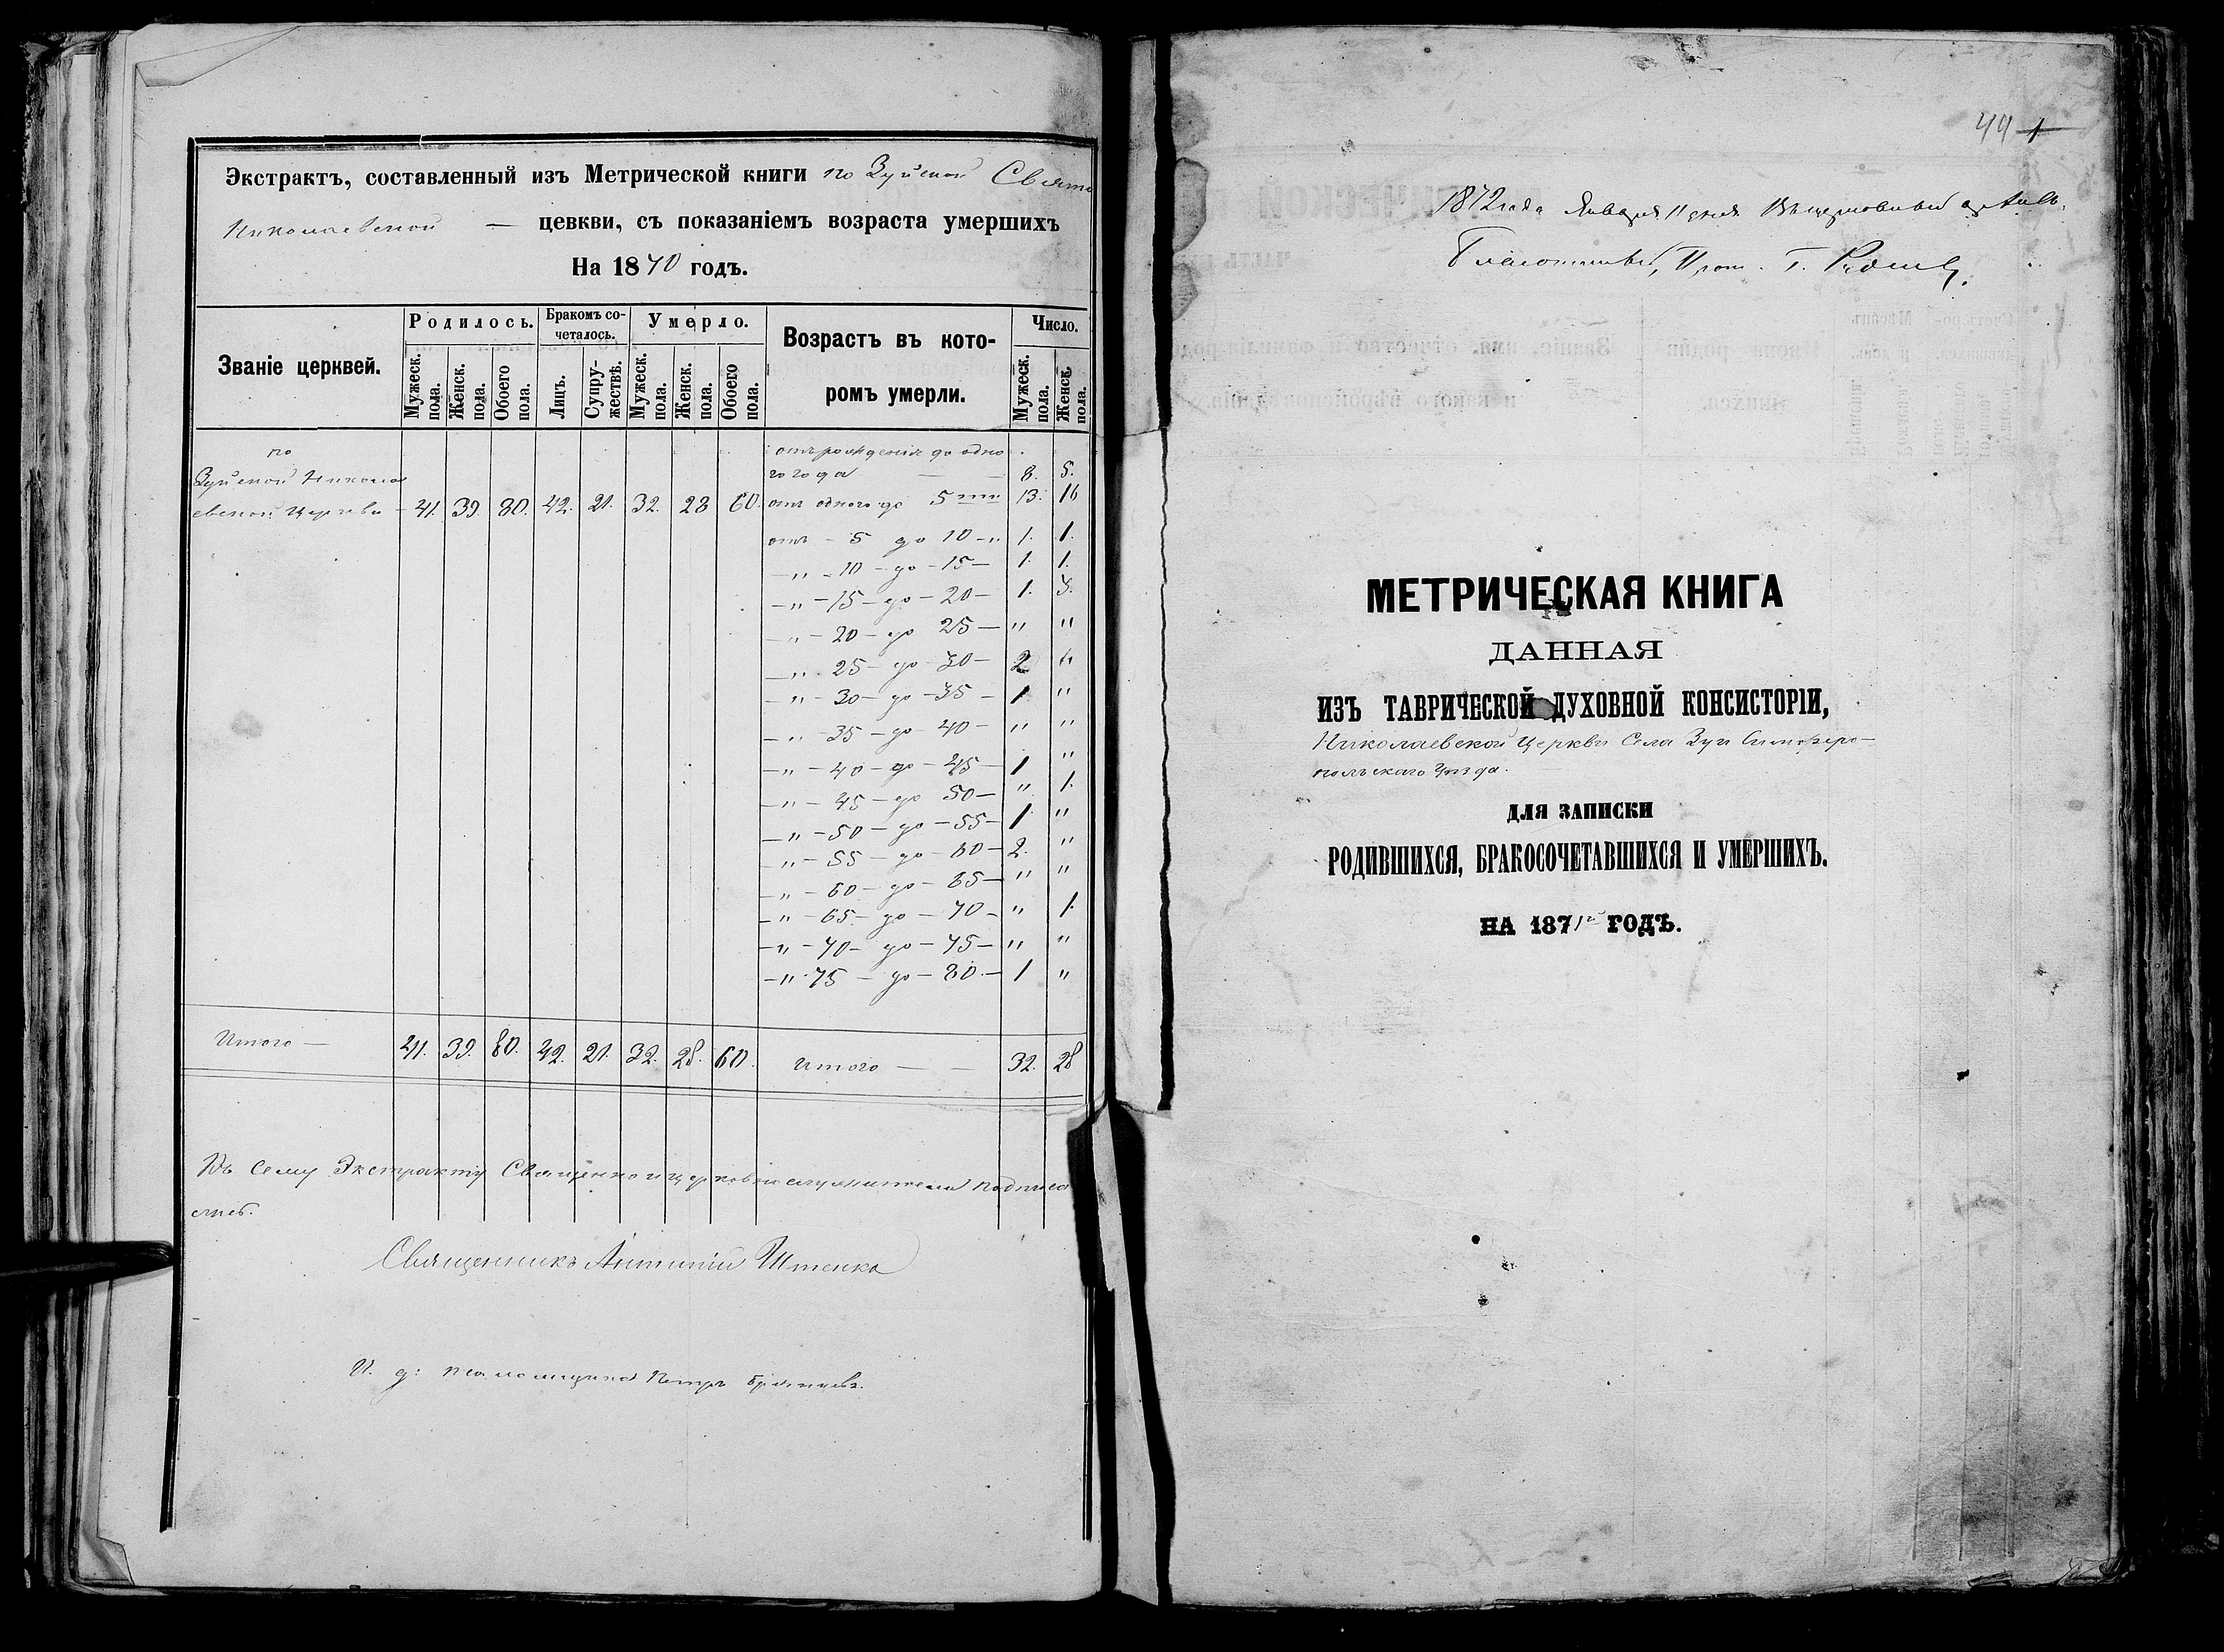 Экстрактъ, составленный изъ Метрической книги по Зуйской Свято
Николаевской — цевкви, съ показаніемъ возраста умершихъ
На 1870 годъ.
Званіе церквей.
Родилось.
Бракомъ со-
четалось.
Умерло.
Возрастъ въ кото-
ромъ умерли.
Число.
Мужеск. пола.
Женск. пола.
Обоего пола.
Лицъ.
Супру-
жествъ.
Мужеск. пола.
Женск. пола.
Обоего пола.
Мужеск. пола.
Женск. пола.
по
Зуйской Никола
евской Церкви – 41. 39. 80. 42. 21. 32. 28 60.
отъ рожденія до одно
го года — — 8. 5.
отъ одного до 5 ти 13. 16
отъ – 5 до 10 – " 1. 1.
— " – 10 – до – 15 — 1. 1.
— " – 15 – до – 20 — 1. 3.
— " – 20 – до 25 — " "
— " 25 – до – 30 — 2 "
— " – 30 – до – 35 – 1 "
— " 35 – до – 40 – " "
— " – 40 – до – 45 – 1 "
— " – 45 – до 50 — " 1.
— " – 50 – до – 55 – 1 "
— " – 55 – до – 60 – 2. "
— " – 60 – до – 65 — " "
— " – 65 – до – 70 – " 1.
— " – 70 – до – 75 – " "
— " 75 – до – 80. – 1 "
Итого — 41. 39. 80. 42. 21. 32. 28. 60. Итого — — 32. 28
Къ сему Экстракту Священно и церковно служители подписа
лись.
Священникъ Антипій Штенко
И. д: псаломщика Петръ Брянцевъ.
49 1
1872 года Января 11 дня
МЕТРИЧЕСКАЯ КНИГА
ДАННАЯ
ИЗЪ ТАВРИЧЕСКОЙ ДУХОВНОЙ КОНСИСТОРІИ,
Николаевской Церкви Села Зуи Симферо–
польскаго Уѣзда.
ДЛЯ ЗАПИСКИ
РОДИВШИХСЯ, БРАКОСОЧЕТАВШИХСЯ И УМЕРШИХЪ.
НА 1871й ГОДЪ.